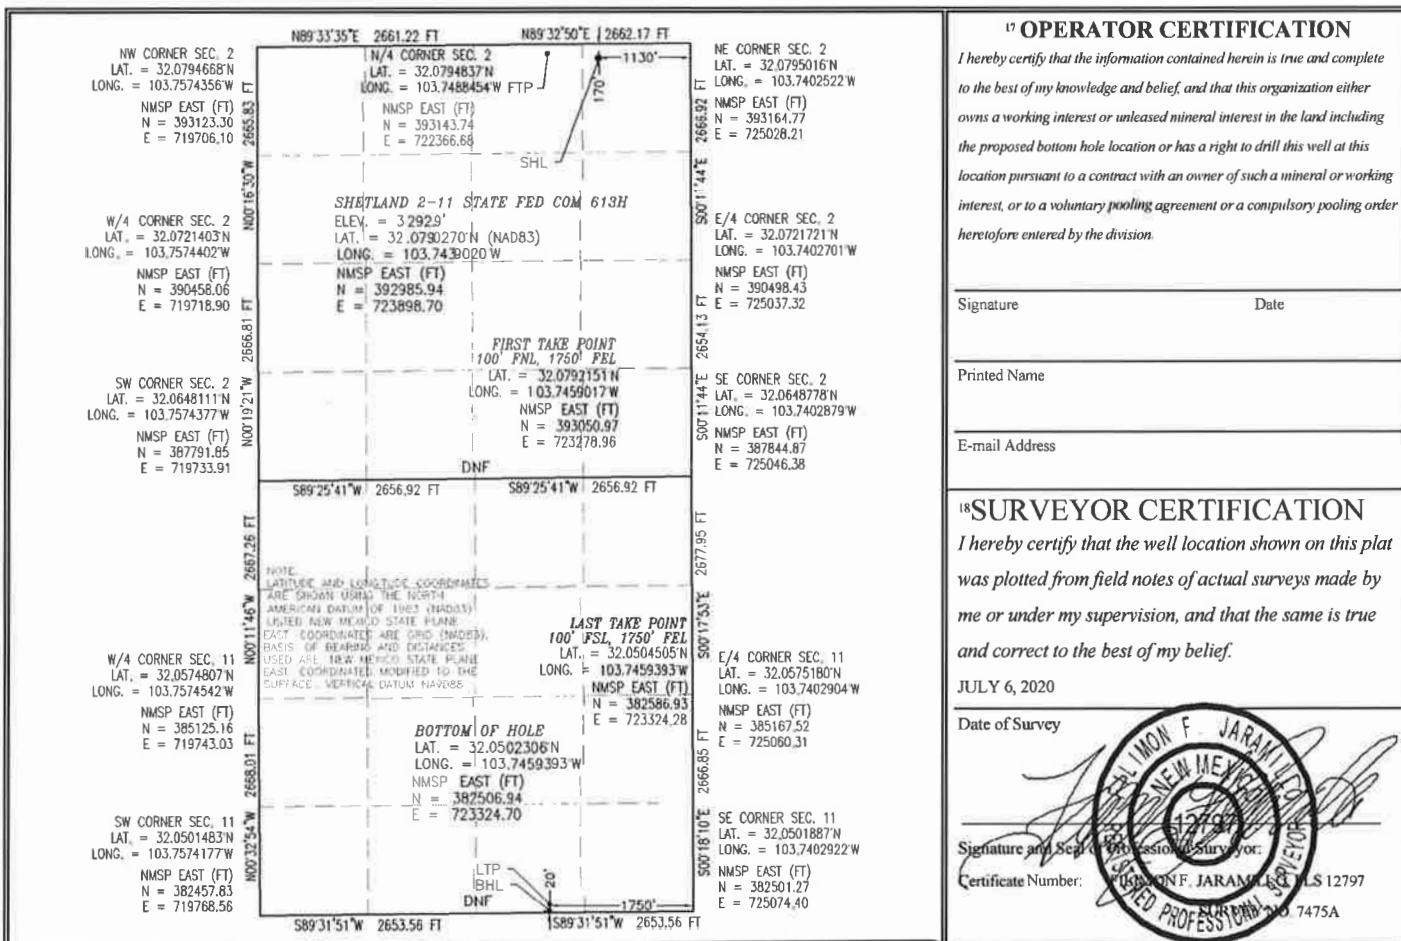 N89°33'35"E 2661.22 FT
N89°32'50"E 2662.17 FT
NW CORNER SEC. 2
LAT. = 32.0794668°N
LONG. = 103.7574356°W
NMSP EAST (FT)
N = 393123.30
E = 719706.10
N/4 CORNER SEC. 2
LAT. = 32.0794837°N
LONG. = 103.7488454°W
NMSP EAST (FT)
N = 393143.74
E = 722366.68
FTP
1130'
170'
SHL
NE CORNER SEC. 2
LAT. = 32.0795016°N
LONG. = 103.7402522°W
NMSP EAST (FT)
N = 393164.77
E = 725028.21
N00°16'30"W 2665.83 FT
S00°11'44"E 2666.92 FT
SHETLAND 2-11 STATE FED COM 613H
ELEV. = 3292.9'
LAT. = 32.0790270°N (NAD83)
LONG. = 103.7439020°W
NMSP EAST (FT)
N = 392985.94
E = 723898.70
W/4 CORNER SEC. 2
LAT. = 32.0721403°N
LONG. = 103.7574402°W
NMSP EAST (FT)
N = 390458.06
E = 719718.90
E/4 CORNER SEC. 2
LAT. = 32.0721721°N
LONG. = 103.7402701°W
NMSP EAST (FT)
N = 390498.43
E = 725037.32
N00°19'21"W 2666.81 FT
S00°11'44"E 2654.13 FT
FIRST TAKE POINT
100' FNL, 1750' FEL
LAT. = 32.0792151°N
LONG. = 103.7459017°W
NMSP EAST (FT)
N = 393050.97
E = 723278.96
SW CORNER SEC. 2
LAT. = 32.0648111°N
LONG. = 103.7574377°W
NMSP EAST (FT)
N = 387791.85
E = 719733.91
SE CORNER SEC. 2
LAT. = 32.0648778°N
LONG. = 103.7402879°W
NMSP EAST (FT)
N = 387844.87
E = 725046.38
DNF
S89°25'41"W 2656.92 FT
S89°25'41"W 2656.92 FT
N00°11'46"W 2667.26 FT
S00°17'53"E 2677.95 FT
NOTE:
LATITUDE AND LONGITUDE COORDINATES
ARE SHOWN USING THE NORTH
AMERICAN DATUM OF 1983 (NAD83).
LISTED NEW MEXICO STATE PLANE
EAST COORDINATES ARE GRID (NAD83).
BASIS OF BEARING AND DISTANCES
USED ARE NEW MEXICO STATE PLANE
EAST COORDINATES MODIFIED TO THE
SURFACE. VERTICAL DATUM NAVD88
LAST TAKE POINT
100' FSL, 1750' FEL
LAT. = 32.0504505°N
LONG. = 103.7459393°W
NMSP EAST (FT)
N = 382586.93
E = 723324.28
W/4 CORNER SEC. 11
LAT. = 32.0574807°N
LONG. = 103.7574542°W
NMSP EAST (FT)
N = 385125.16
E = 719743.03
E/4 CORNER SEC. 11
LAT. = 32.0575180°N
LONG. = 103.7402904°W
NMSP EAST (FT)
N = 385167.52
E = 725060.31
BOTTOM OF HOLE
LAT. = 32.0502306°N
LONG. = 103.7459393°W
NMSP EAST (FT)
N = 382506.94
E = 723324.70
N00°32'54"W 2668.01 FT
S00°18'10"E 2666.85 FT
SW CORNER SEC. 11
LAT. = 32.0501483°N
LONG. = 103.7574177°W
NMSP EAST (FT)
N = 382457.83
E = 719768.56
SE CORNER SEC. 11
LAT. = 32.0501887°N
LONG. = 103.7402922°W
NMSP EAST (FT)
N = 382501.27
E = 725074.40
LTP
BHL
DNF
20'
1750'
S89°31'51"W 2653.56 FT
S89°31'51"W 2653.56 FT
17 OPERATOR CERTIFICATION
I hereby certify that the information contained herein is true and complete
to the best of my knowledge and belief, and that this organization either
owns a working interest or unleased mineral interest in the land including
the proposed bottom hole location or has a right to drill this well at this
location pursuant to a contract with an owner of such a mineral or working
interest, or to a voluntary pooling agreement or a compulsory pooling order
heretofore entered by the division.
Signature Date
Printed Name
E-mail Address
18 SURVEYOR CERTIFICATION
I hereby certify that the well location shown on this plat
was plotted from field notes of actual surveys made by
me or under my supervision, and that the same is true
and correct to the best of my belief.
JULY 6, 2020
Date of Survey
Signature and Seal of Professional Surveyor:
Certificate Number: FILIMON F. JARAMILLO, PLS 12797
SURVEY NO. 7475A
FILIMON F. JARAMILLO
NEW MEXICO
12797
REGISTERED PROFESSIONAL SURVEYOR